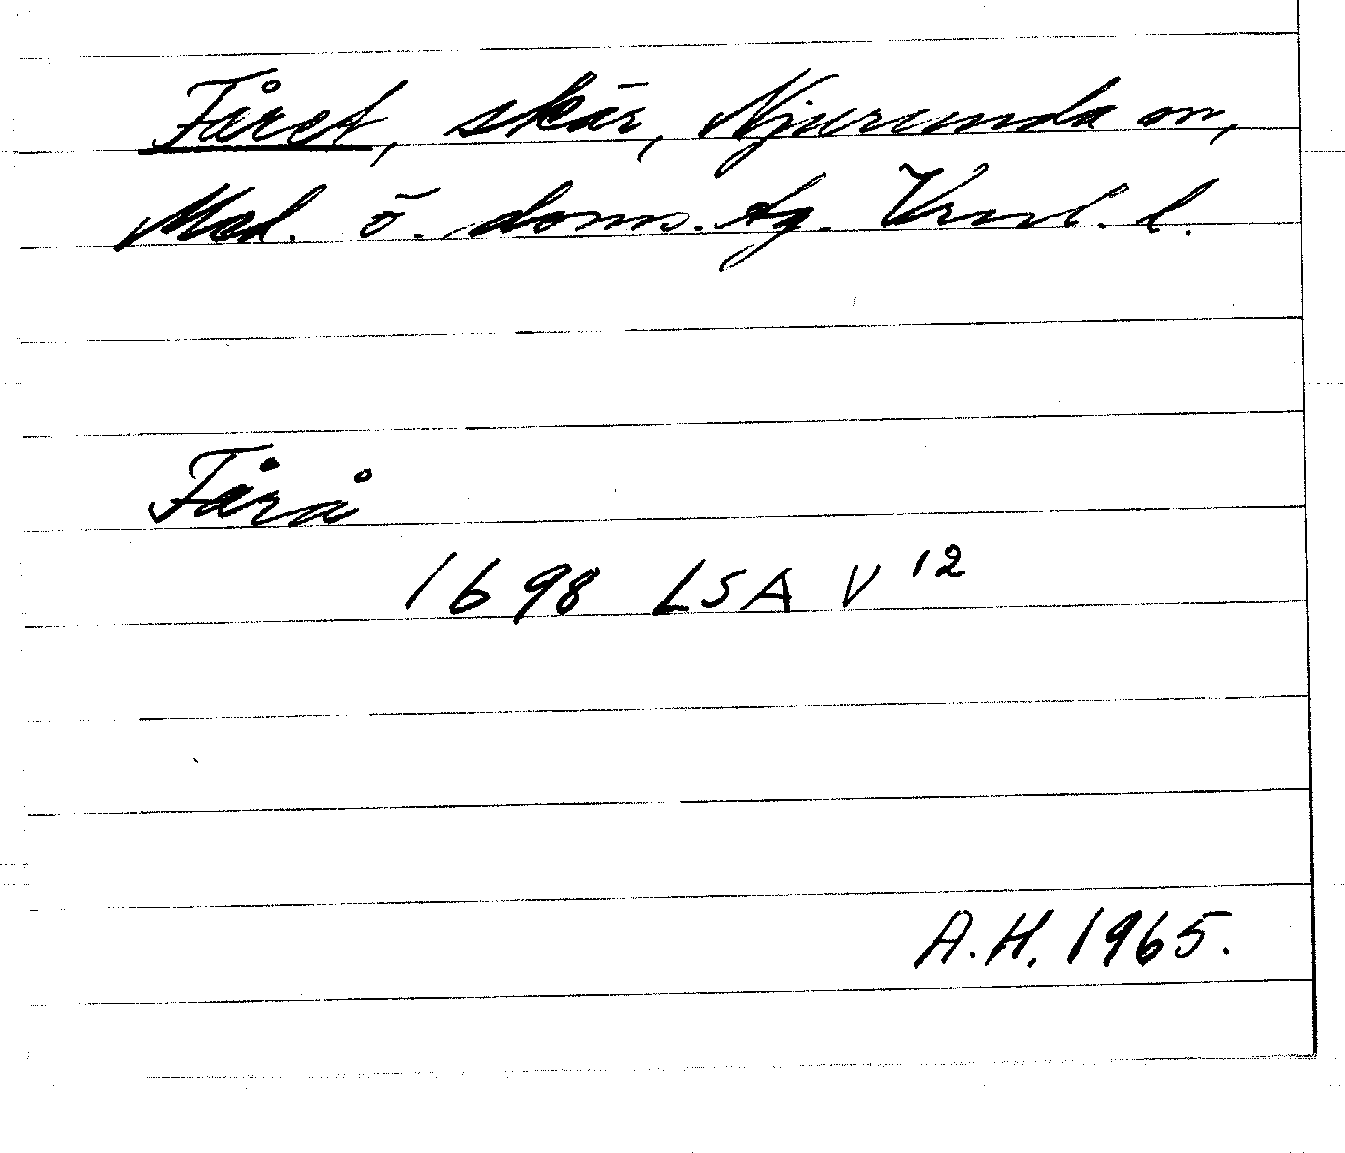 Fåret, skär, Njurunda sn,
Med. ö. doms. tg. Vrnl. l.
Fårå
1698 LSA V 12
A.H. 1965.